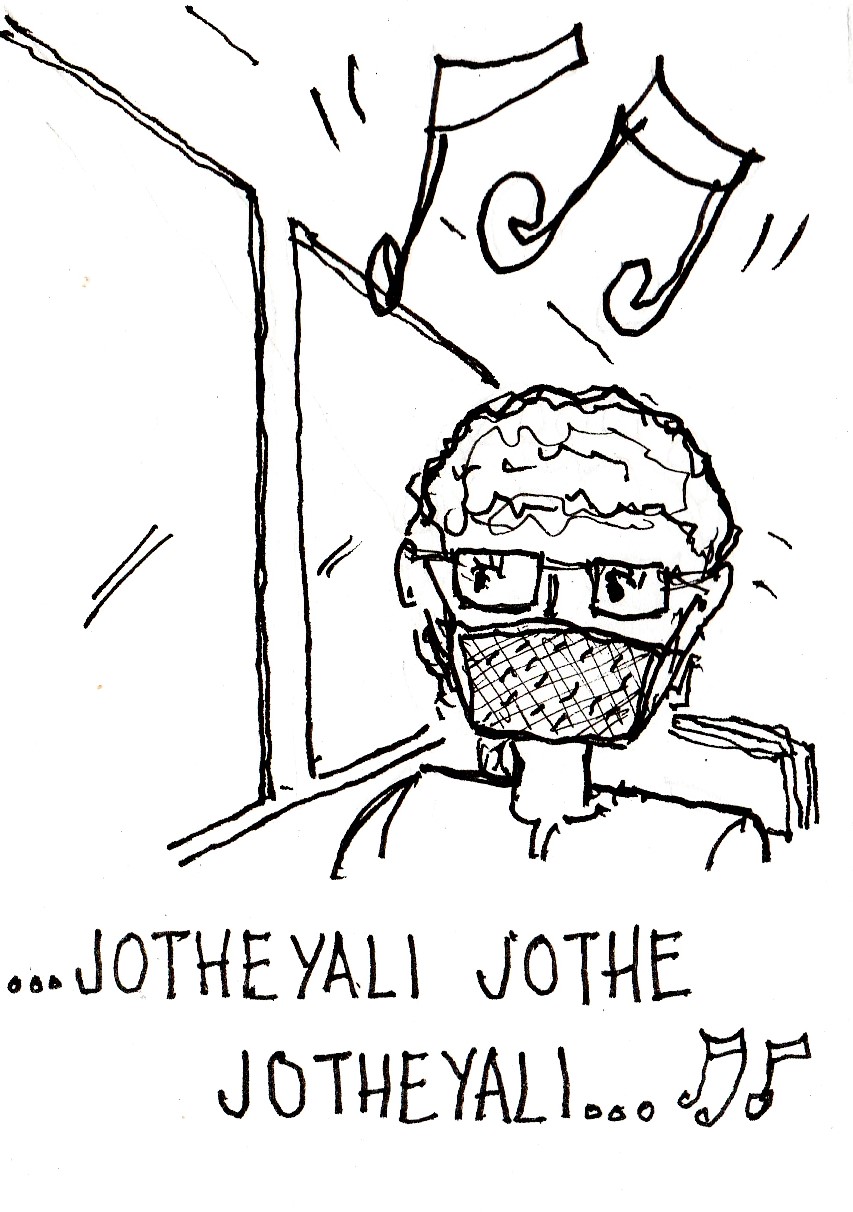 ...JOTHEYALI JOTHE
JOTHEYALI...